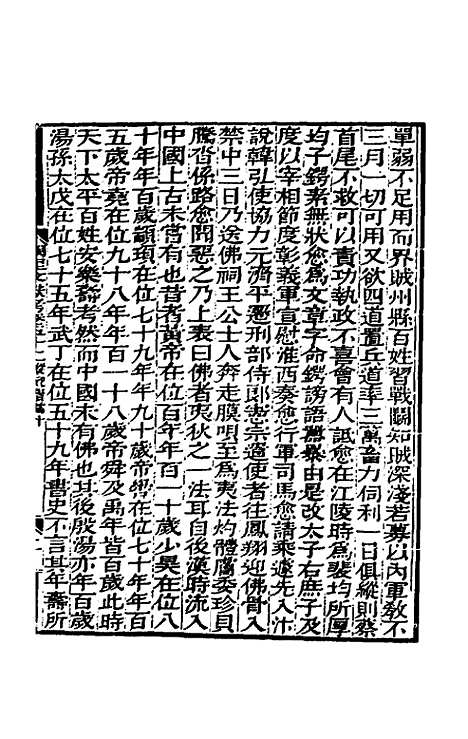 單弱不足用而界賊州縣百姓習戰鬭知賊深淺若募以內軍敎不
三月一切可用又欲四道置兵道率三萬畜力伺利一日俱縱則蔡
首尾不救可以責功執政不喜會有人詆愈在江陵時爲裴均所厚
均子鍔素無狀愈爲文章字命鍔謗語囂然由是改太子右庶子及
度以宰相節度彰義軍宣慰淮西奏愈行軍司馬愈請乘遽先入汴
說韓弘使協力元濟平遷刑部侍郎憲宗遣使者往鳳翔迎佛骨入
禁中三日乃送佛祠王公士人奔走膜唄至爲夷法灼體膚委珍貝
騰沓係路愈聞惡之乃上表曰佛者夷狄之一法耳自後漢時流入
中國上古未嘗有也昔者黃帝在位百年年百一十歲少昊在位八
十年年百歲顓頊在位七十九年年九十歲帝嚳在位七十年年百
五歲帝堯在位九十八年年百一十八歲帝舜及禹年皆百歲此時
天下太平百姓安樂壽考然而中國未有佛也其後殷湯亦年百歲
湯孫太戊在位七十五年武丁在位五十九年書史不言其年壽所